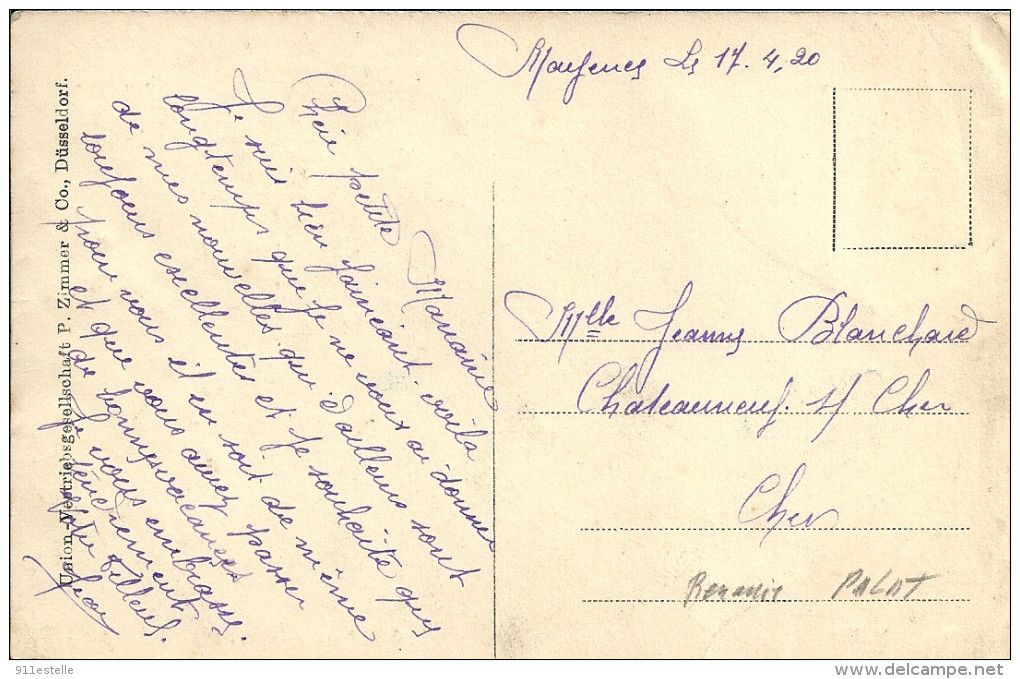 Mayence Le 17.4.20
Chère petite Marraine
Je suis bien fainéant. voila
longtemps que je ne vous ai donner
de mes nouvelles qui d'ailleurs sont
toujours excellentes et je souhaite que
pour vous il en soit de même
et que vous avez passer
de bonnes vacances
Je vous embrasse
tendrement
Votre filleul.
Jean
Union-Vertriebsgesellschaft P. Zimmer & Co., Düsseldorf.
Mlle Jeanne Blanchard
Chateauneuf. s/ Cher
Cher
PALAT
911estelle
www.delcampe.net